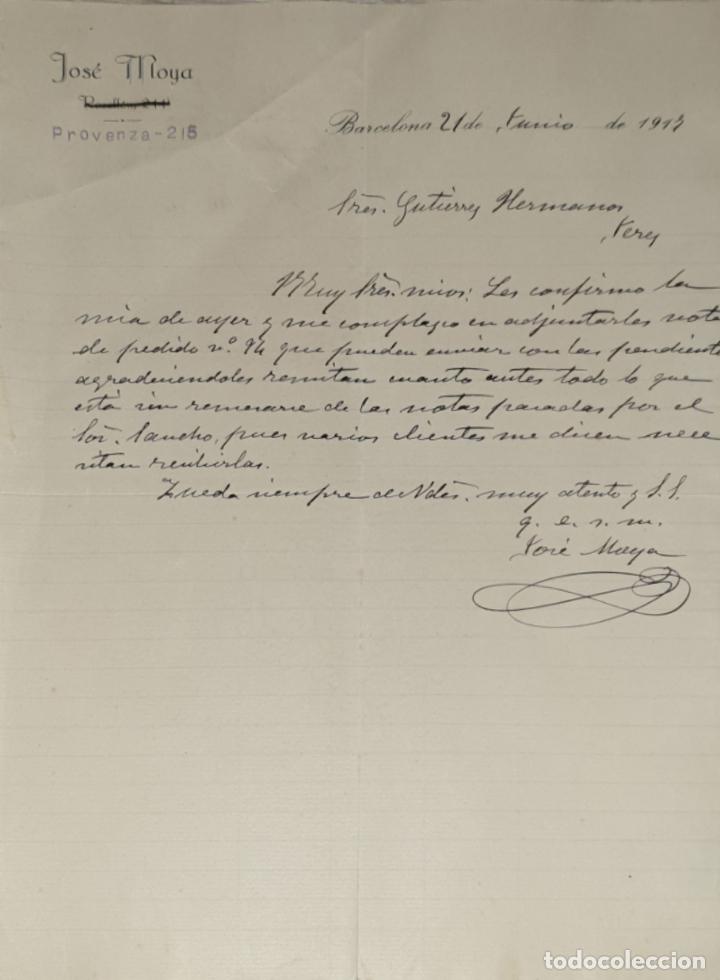 José Moya
Rosellón, 211
Provenza-215
Barcelona 21 de Junio de 1917
Sres. Gutierrez Hermanos
Xerez
Muy Sres. mios: Les confirmo la
mia de ayer y me complazco en adjuntarles nota
de pedido nº. 94 que pueden enviar con las pendiente
agradeciendoles remitan cuanto antes todo lo que
está sin remesarse de las notas pasadas por el
Sor. Sancho, pues varios clientes me dicen nece
sitan recibirlas.
Queda siempre de Vdes. muy atento y S.S.
q. e. s. m.
José Moya
todocoleccion